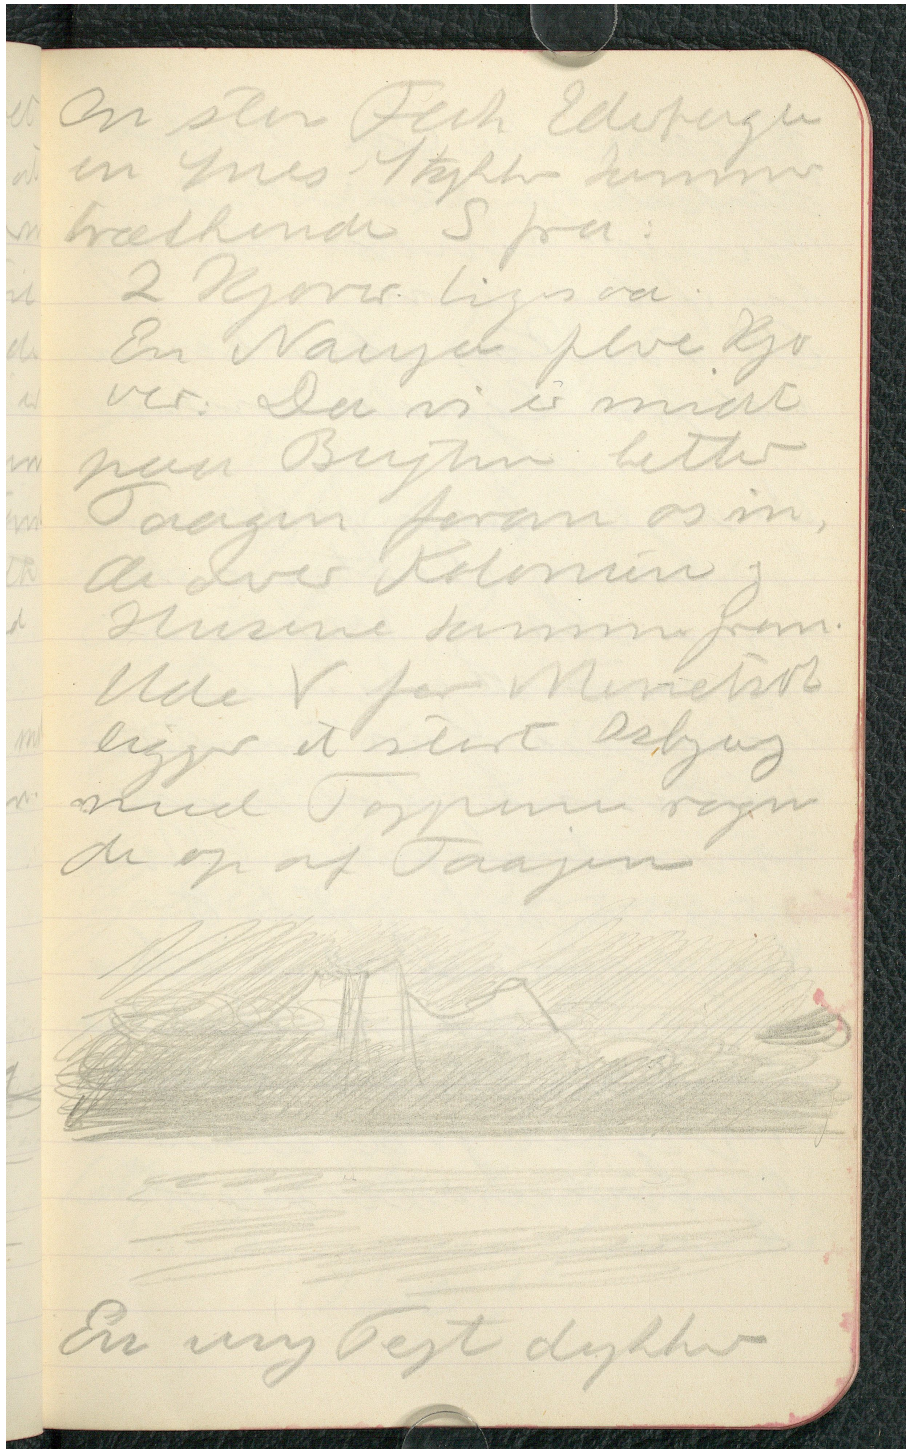 En stor Flok Ederfugle
en Snes Stykker kommer
trækkende S fra:
2 Kjover ligesaa.
En Nauja flere Kjo
ver. Da vi er midt
paa Bugten letter
Taagen foran os in,
de over Kolonien &
Husene kommer frem.
Ude V for
ligger et stort Isbjerg
med Toppene ragen
de op af Taagen
En ung Tejst dykker